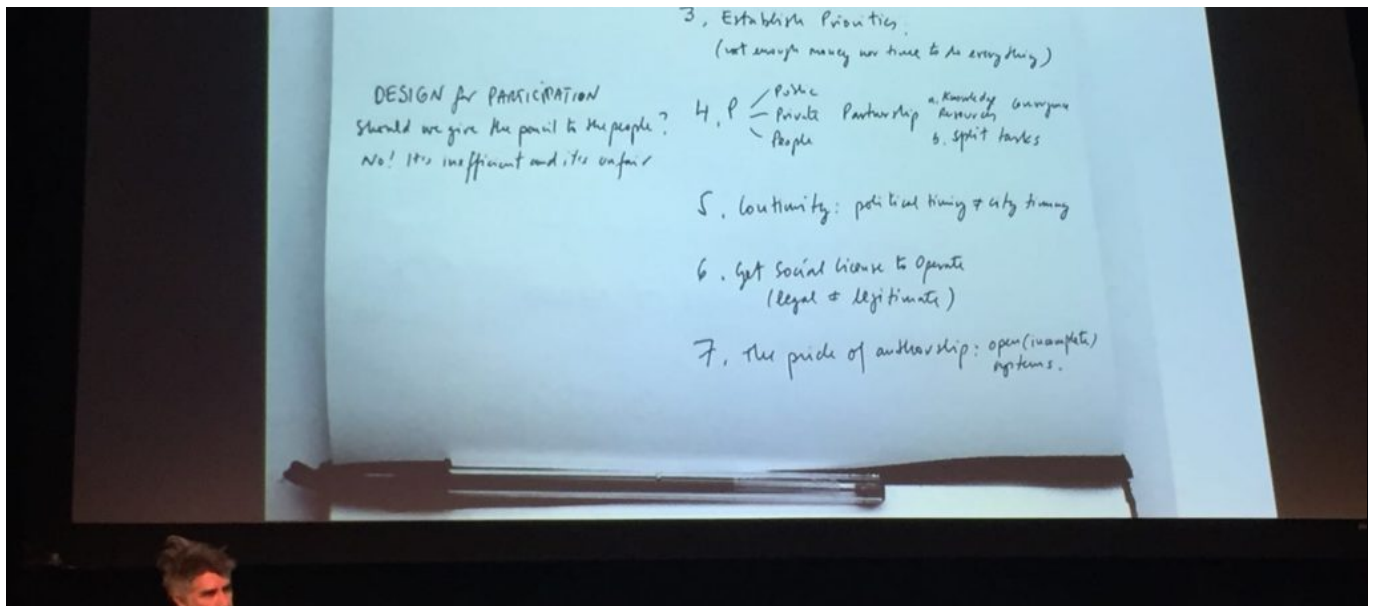 DESIGN for PARTICIPATION
Should we give the pencil to the people?
No! It's inefficient and it's unfair
3. Establish Priorities.
(not enough money nor time to do everything)
4. P Public Private People Partnership
a. Knowledge Resources
b. split tasks
5. Continuity: political timing ≠ city timing
6. Get Social License to Operate
(legal ≠ legitimate)
7. The pride of authorship: open (incomplete)
systems.